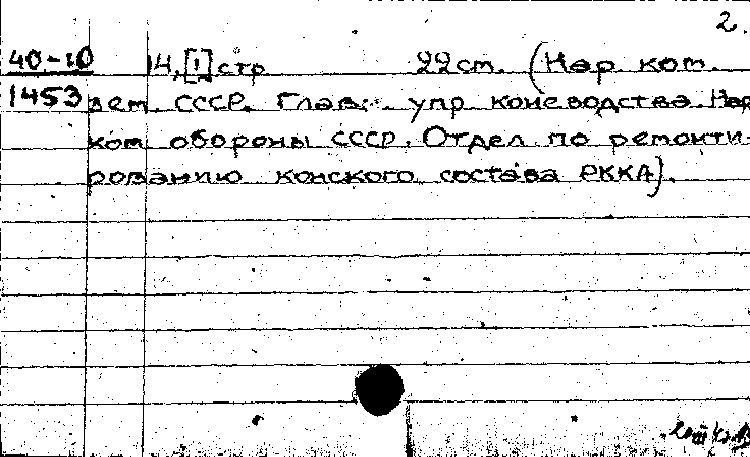 2.
40-10 14,[1] стр 22 см. (Нар ком.
1453 зем. СССР. Глав. упр коневодства. Нар
ком обороны СССР. Отдел по ремонти-
рованию конского состава РККА).